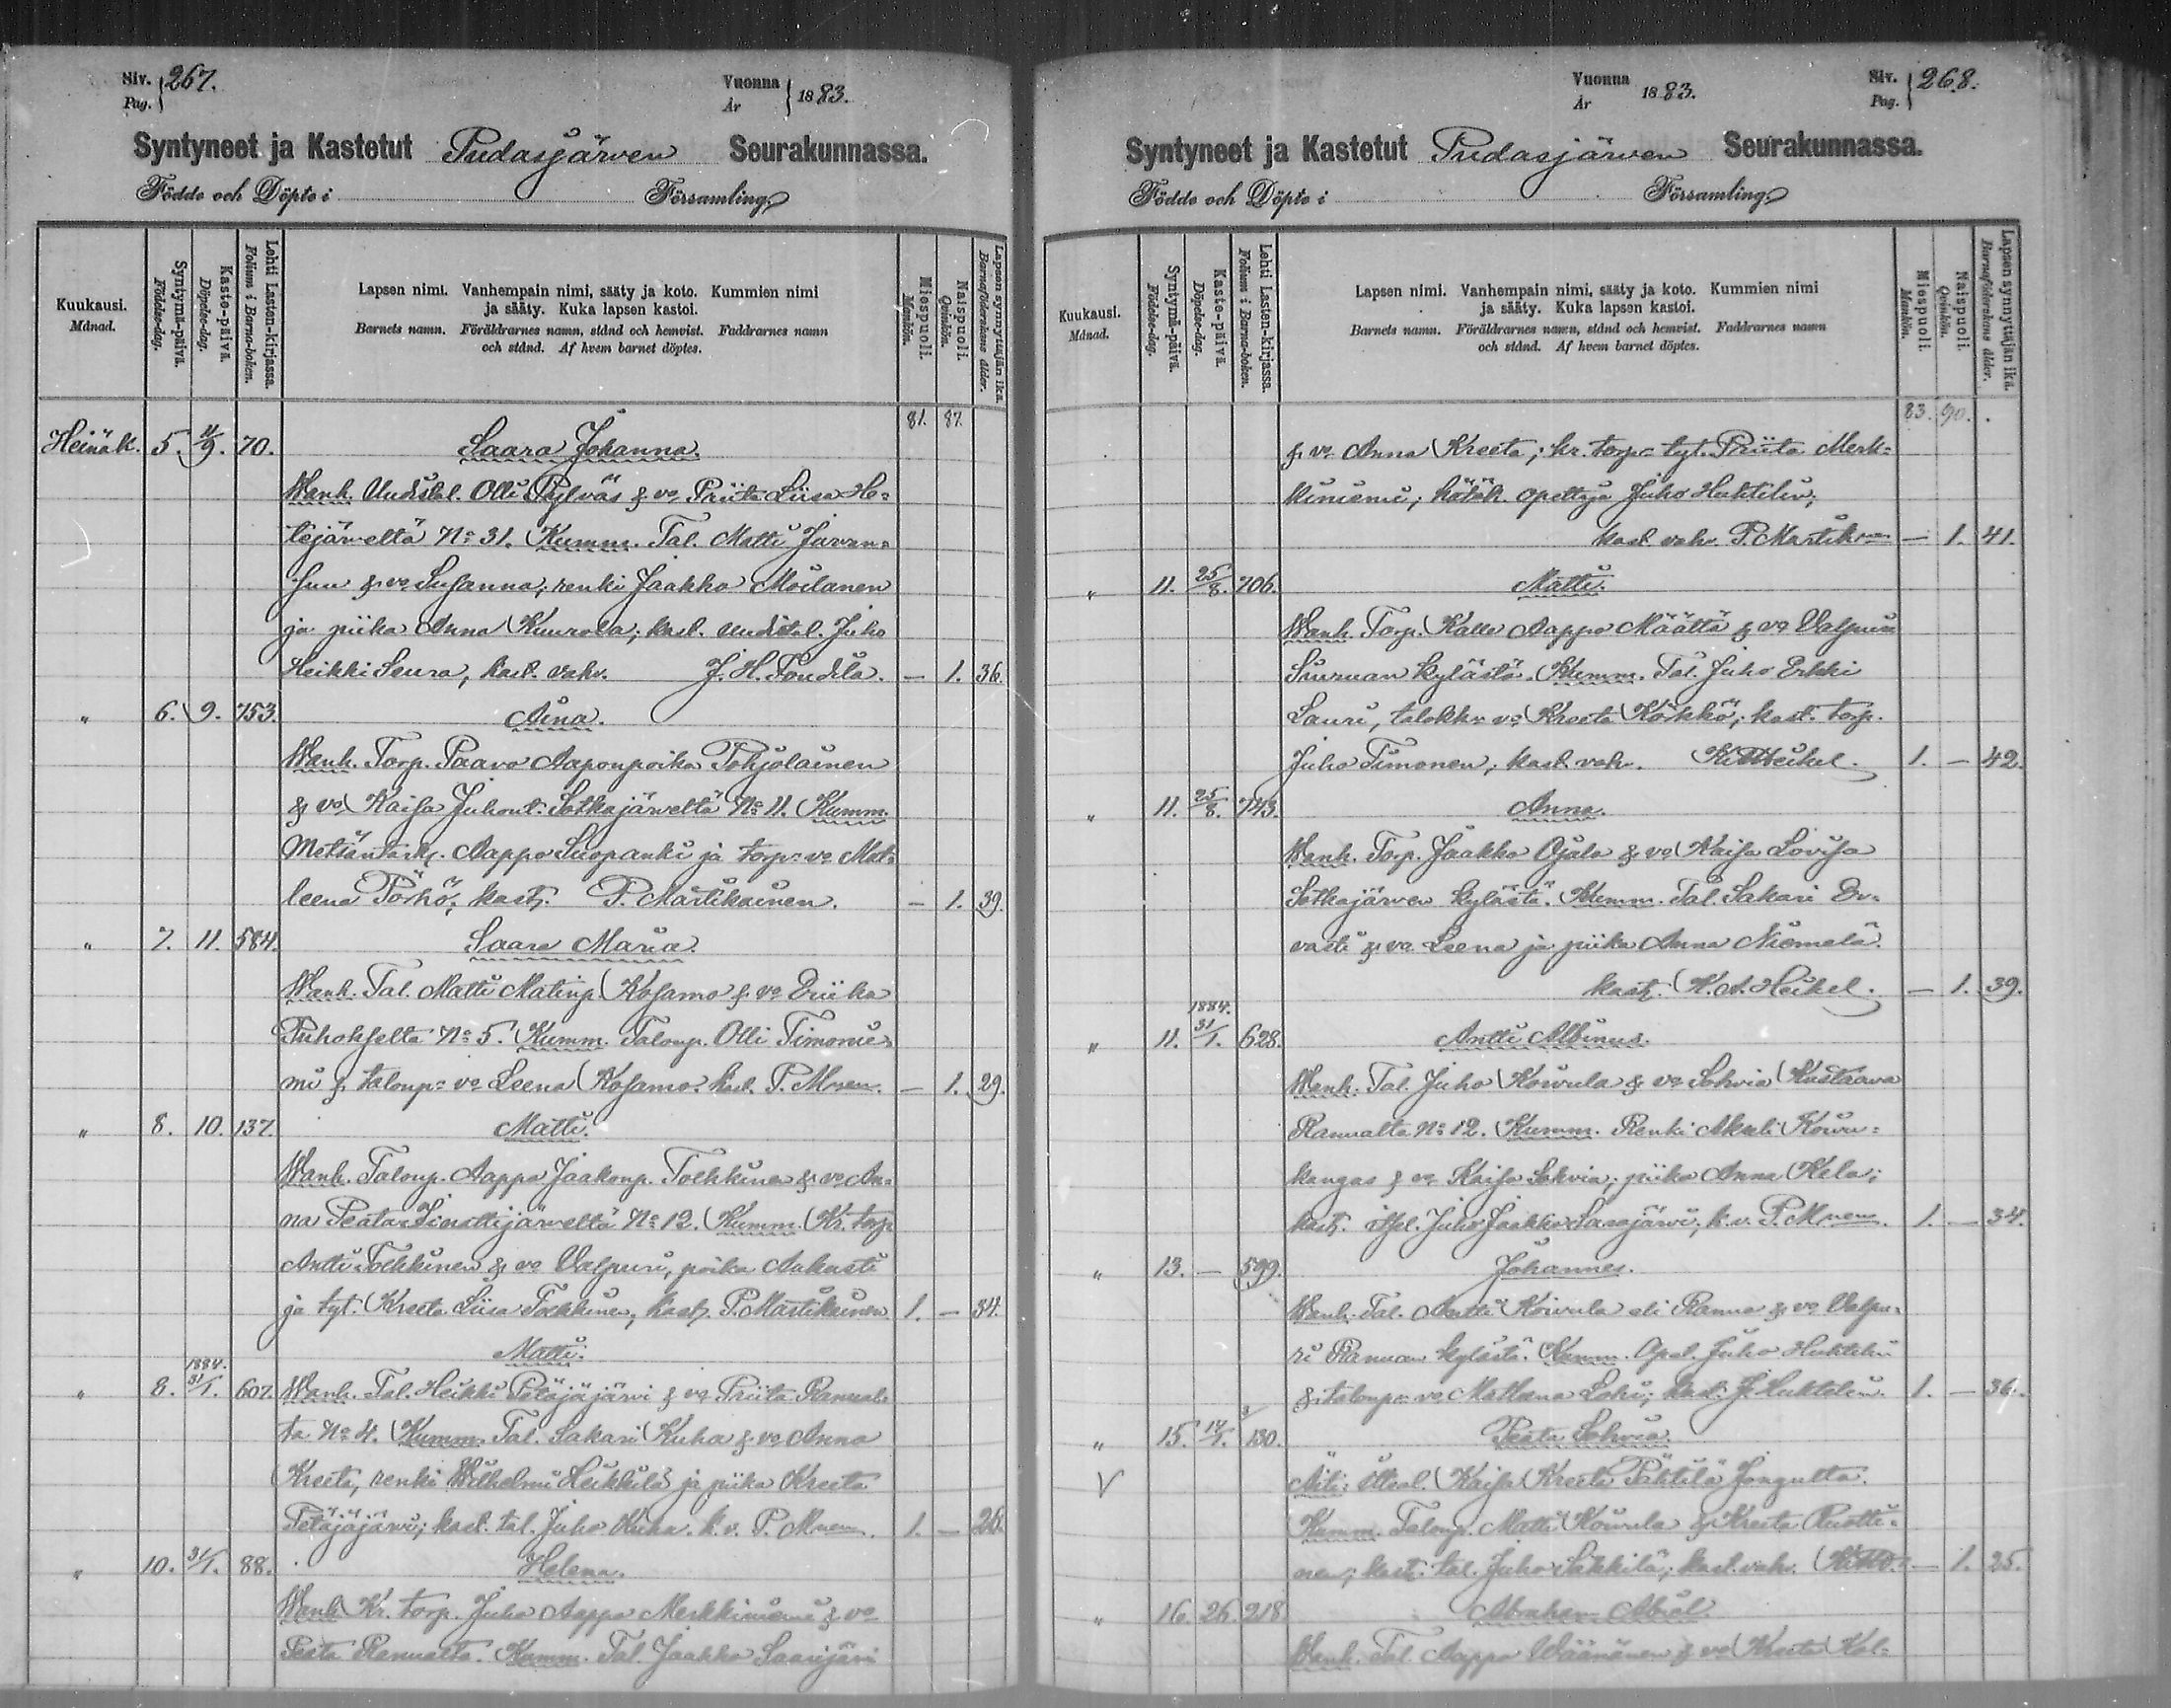 Siv. 267.
Pag.
Vuonna 1883.
År
Syntyneet ja Kastetut Pudasjärven Seurakunnassa.
Födde och Döpte i Församling
Kuukausi.
Månad.
Syntymä-päivä.
Födelse-dag.
Kaste-päivä.
Döpelse-dag.
Lehti Lasten-kirjassa.
Folium i Barna-boken.
Lapsen nimi. Vanhempain nimi, sääty ja koto. Kummien nimi
ja sääty. Kuka lapsen kastoi.
Barnets namn. Föräldrarnes namn, stånd och hemvist. Faddrarnes namn
och stånd. Af hvem barnet döptes.
Miespuoli.
Mankön.
Naispuoli.
Qvinkön.
Lapsen synnyttäjän ikä.
Barnaföderskans ålder.
81. 87.
Heinäk. 5. 9. 70. Saara Johanna.
Wanh. Uudistal. Olli Pylväs & vo Priita Liisa He=
tejärveltä No 31. Kumm. Tal. Matti Juvan=
suu & vo Susanna; renki Jaakko Moilanen
ja piika Anna Kuurola; kast. uudistal. Juho
Heikki Seura, kast. vahv. J. H. Tondila. — 1. 36.
" 6. 9. 753. Aina.
Wanh. Torp. Paavo Aaponpoika Pohjolainen
& vo Kaisa Juhont. Sotkajärveltä No 11. Kumm.
Metsänvarti. Aappo Suopanki ja torp= vo Mat=
leena Pörhö; kast. P. Martikainen. — 1. 39.
" 7. 11. 584. Saara Maria.
Wanh. Tal. Matti Matinp. Kosamo & vo Eriika
Puhokselta No 5. Kumm. Taloup. Olli Timonie=
mi & taloup= vo Leena Kosamo. kast. P. Mnen. — 1. 29.
" 8. 10. 137. Matti.
Wanh. Taloup. Aappo Jaakonp. Tolkkinen & vo An=
na Peata Sinettijärveltä No 12. Kumm. Kr. torp
Antti Tolkkinen & vo Valpuri, poika Aukusti
ja tyt. Kreeta Liisa Tolkkinen, kast. P. Martikainen 1. — 34.
Matti.
1884.
" 8. 31/1. 607. Wanh. Tal. Heikki Petäjäjärvi & vo Priita Ranual=
ta No 4. Kumm. Tal. Sakari Kuha & vo Anna
Kreeta, renki Wilhelmi Heikkilä ja piika Kreeta
Petäjäjärvi; kast. tal. Juho Kuha. k. v. P. Mnen. 1. — 26.
" 10. 31/1. 88. Helena.
Wanh. Kr. torp. Juho Aappo Merkkiniemi & vo
Peata Ranualta. Kumm. Tal. Jaakko Saarijärvi
Vuonna 1883.
År
Siv. 268.
Pag.
Syntyneet ja Kastetut Pudasjärven Seurakunnassa.
Födde och Döpte i Församling
Kuukausi.
Månad.
Syntymä-päivä.
Födelse-dag.
Kaste-päivä.
Döpelse-dag.
Lehti Lasten-kirjassa.
Folium i Barna-boken.
Lapsen nimi. Vanhempain nimi, sääty ja koto. Kummien nimi
ja sääty. Kuka lapsen kastoi.
Barnets namn. Föräldrarnes namn, stånd och hemvist. Faddrarnes namn
och stånd. Af hvem barnet döptes.
Miespuoli.
Mankön.
Naispuoli.
Qvinkön.
Lapsen synnyttäjän ikä.
Barnaföderskans ålder.
83. 90.
& vo Anna Kreeta; kr. torp= tyt. Priita Merk=
kiniemi; opettaja Juho Huhtelin;
kast. vahv. P. Martik — 1. 41.
" 11. 25/8. 706. Matti.
Wanh. Torp. Kalle Aappo Määttä & vo Valpuri
Siuruan kylästä. Kumm. Tal. Juho Erkki
Lauri, talokkr vo Kreeta Körkkö; kast. torp.
Juho Timonen, kast. vahv. Heikel. 1. — 42.
" 11. 25/8. 743. Anna.
Wanh. Torp. Jaakko Ojala & vo Kaisa Lovisa
Sotkajärven kylästä. Kumm. Tal. Sakari Er=
vasti & vo Leena ja piika Anna Niemelä.
kast. K. A. Heikel. — 1. 39.
1884.
" 11. 31/1. 628. Antti Albinus.
Wanh. Tal. Juho Koivula & vo Sohvia Kustaava
Ranualta No 12. Kumm. Renki Akseli Koivu=
kangas & vo Kaisa Sohvia; piika Anna Kela;
kast. itsel. Juho Jaakko Sarajärvi; k. v. P. Mnen. 1. — 34.
" 13. — 599. Johannes.
Wanh. Tal. Antti Koivula eli Ranua & vo Valpu=
ri Ranuan kylästä. Kumm. Opet. Juho Huhtelin
& taloup= vo Matleena Lohi; kast. J. Huhtelin. 1. — 36.
" 15. 14/1. 130. Peata Sohvia.
V Äiti: Itsel. Kaisa Kreeta Pähtilä Jongulta.
Kumm. Taloup. Matti Koivula & Kreeta Ruotti=
nen; kast: tal. Juho Säkkilä; kast. vahv. — 1. 25.
" 16. 26. 218. Abraham Abiel.
Wanh. Tal. Aappo Väänänen & vo Kreeta Kal=